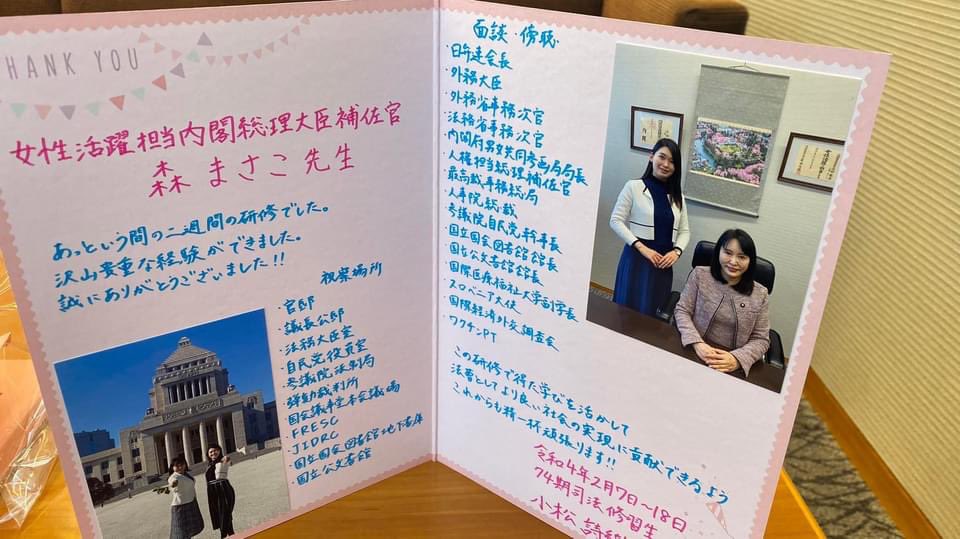 HANK YOU
女性活躍担当内閣総理大臣補佐官
森 まさこ 先生
あっという間の二週間の研修でした。
沢山貴重な経験ができました。
誠にありがとうございました!!
視察場所
・官邸
・議長公邸
・法務大臣室
・自民党役員室
・参議院法制局
・弾劾裁判所
・国会議事堂本会議場
・FRESC
・JIDRC
・国立国会図書館地下書庫
・国立公文書館
面談・傍聴
・日弁連会長
・外務大臣
・外務省事務次官
・法務省事務次官
・内閣府男女共同参画局局長
・人権担当総理補佐官
・最高裁事務総局
・人事院総裁
・参議院自民党幹事長
・国立国会図書館館長
・国立公文書館館長
・国際医療福祉大学副学長
・スロベニア大使
・国際経済外交調査会
・ワクチンPT
この研修で得た学びを活かして
法曹としてより良い社会の実現に貢献できるよう
これからも精一杯頑張ります!!
令和4年2月7日〜18日
74期司法修習生
小松 詩